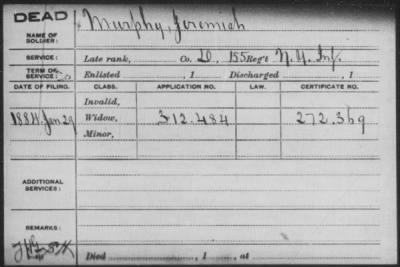 DEAD
NAME OF SOLDIER:
Murphy, Jeremiah
SERVICE:
Late rank, Co. D, 155 Reg't N.Y. Inf.
TERM OF SERVICE:
Enlisted , 1 Discharged , 1
DATE OF FILING. CLASS. APPLICATION NO. LAW. CERTIFICATE NO.
Invalid,
1884. Jan 29 Widow, 312.484 272.369
Minor,
ADDITIONAL SERVICES:
REMARKS:
Died , 1 , at